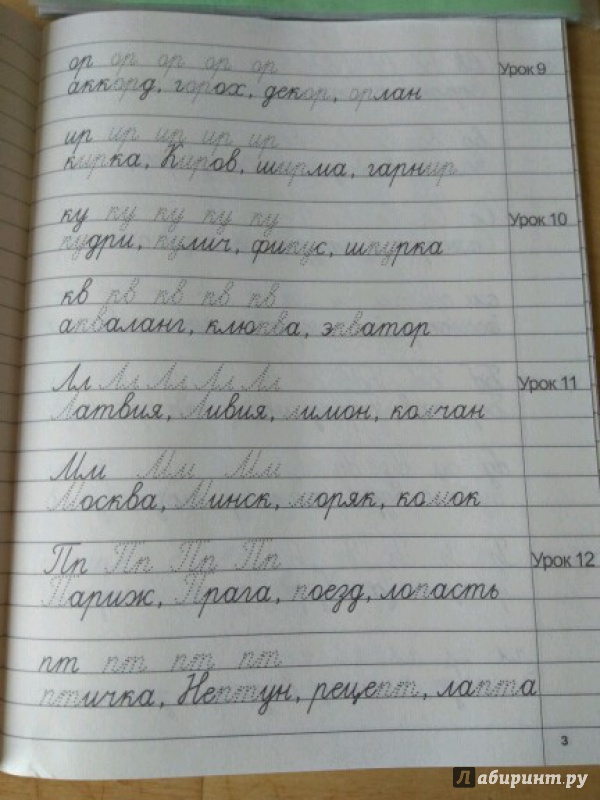 ор ор ор ор ор
аккорд, горох, декор, орлан
Урок 9
ир ир ир ир ир
кирка, Киров, ширма, гарнир
ку ку ку ку ку
Урок 10
кудри, кулич, фикус, шкурка
кв кв кв кв кв
акваланг, клюква, экватор
Лл Лл Лл Лл Лл
Урок 11
Латвия, Ливия, лимон, колчан
Мм Мм Мм
Москва, Минск, моряк, комок
Пп Пп Пп Пп
Урок 12
Париж, Прага, поезд, лопасть
пт пт пт пт
птичка, Нептун, рецепт, лапта
3
Лабиринт.ру